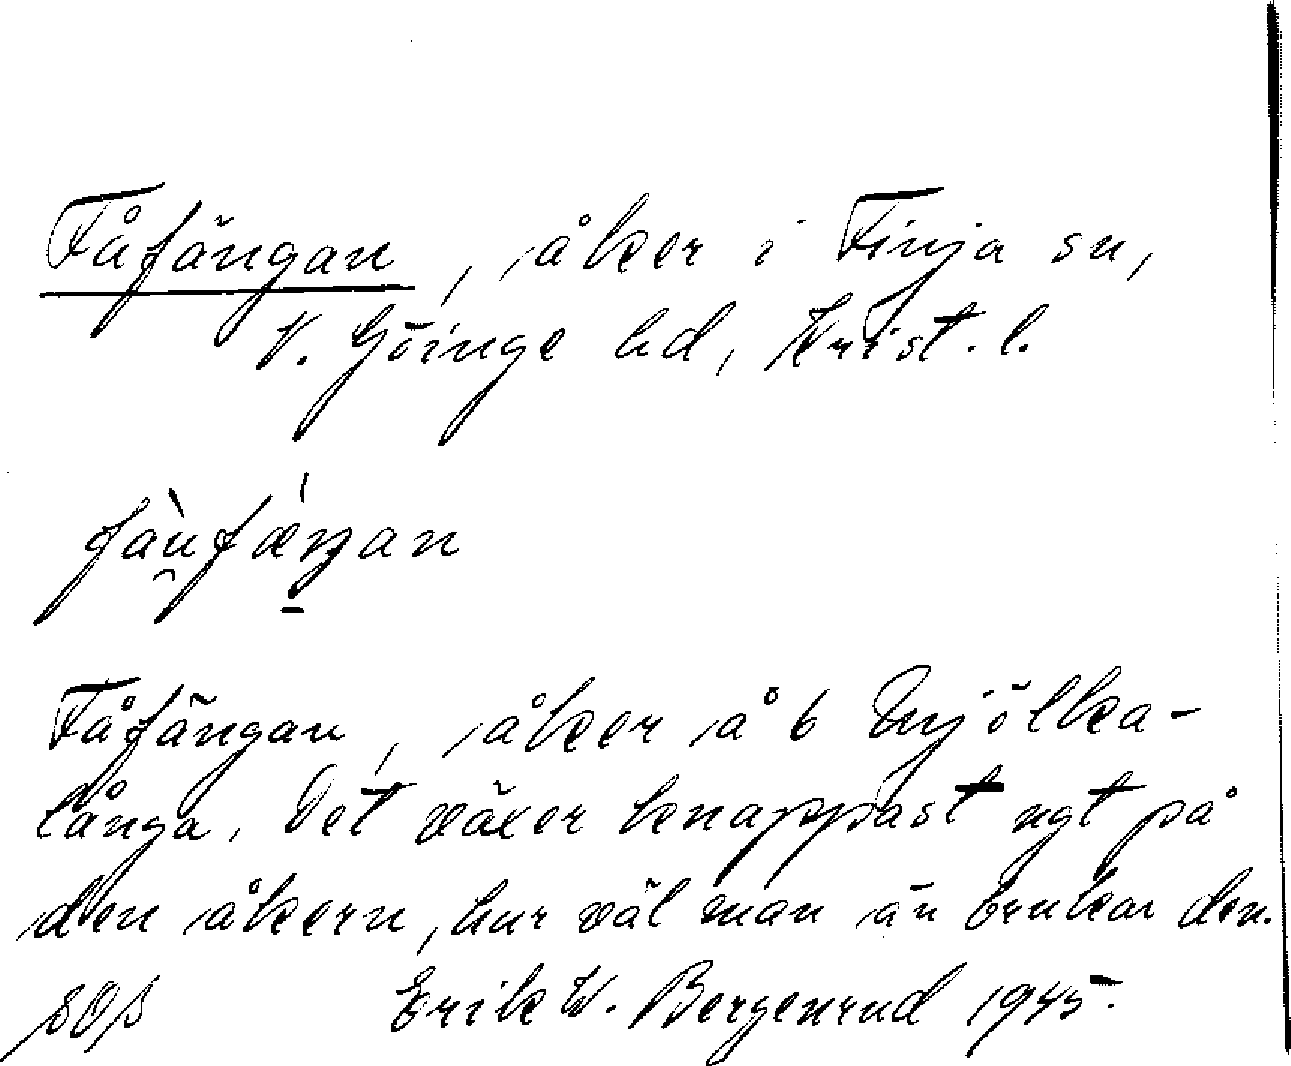 Fåfängan, åker i Finja sn,
V. Göinge hd, Krist. l.
fàu̯fǽŋan
Fåfängan, åker å 6 Mjölka-
långa. Det växer knappast ngt på
den åkern, hur väl man än brukar den.
Erik W. Bergenrud 1945.